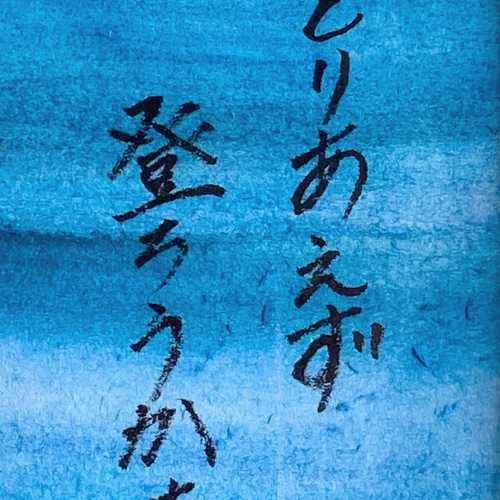 とりあえず
登ろうか